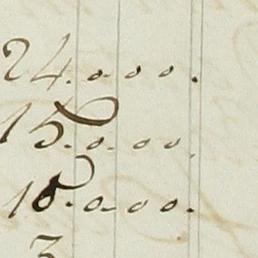 24.000.
15.000.
18.000.
3